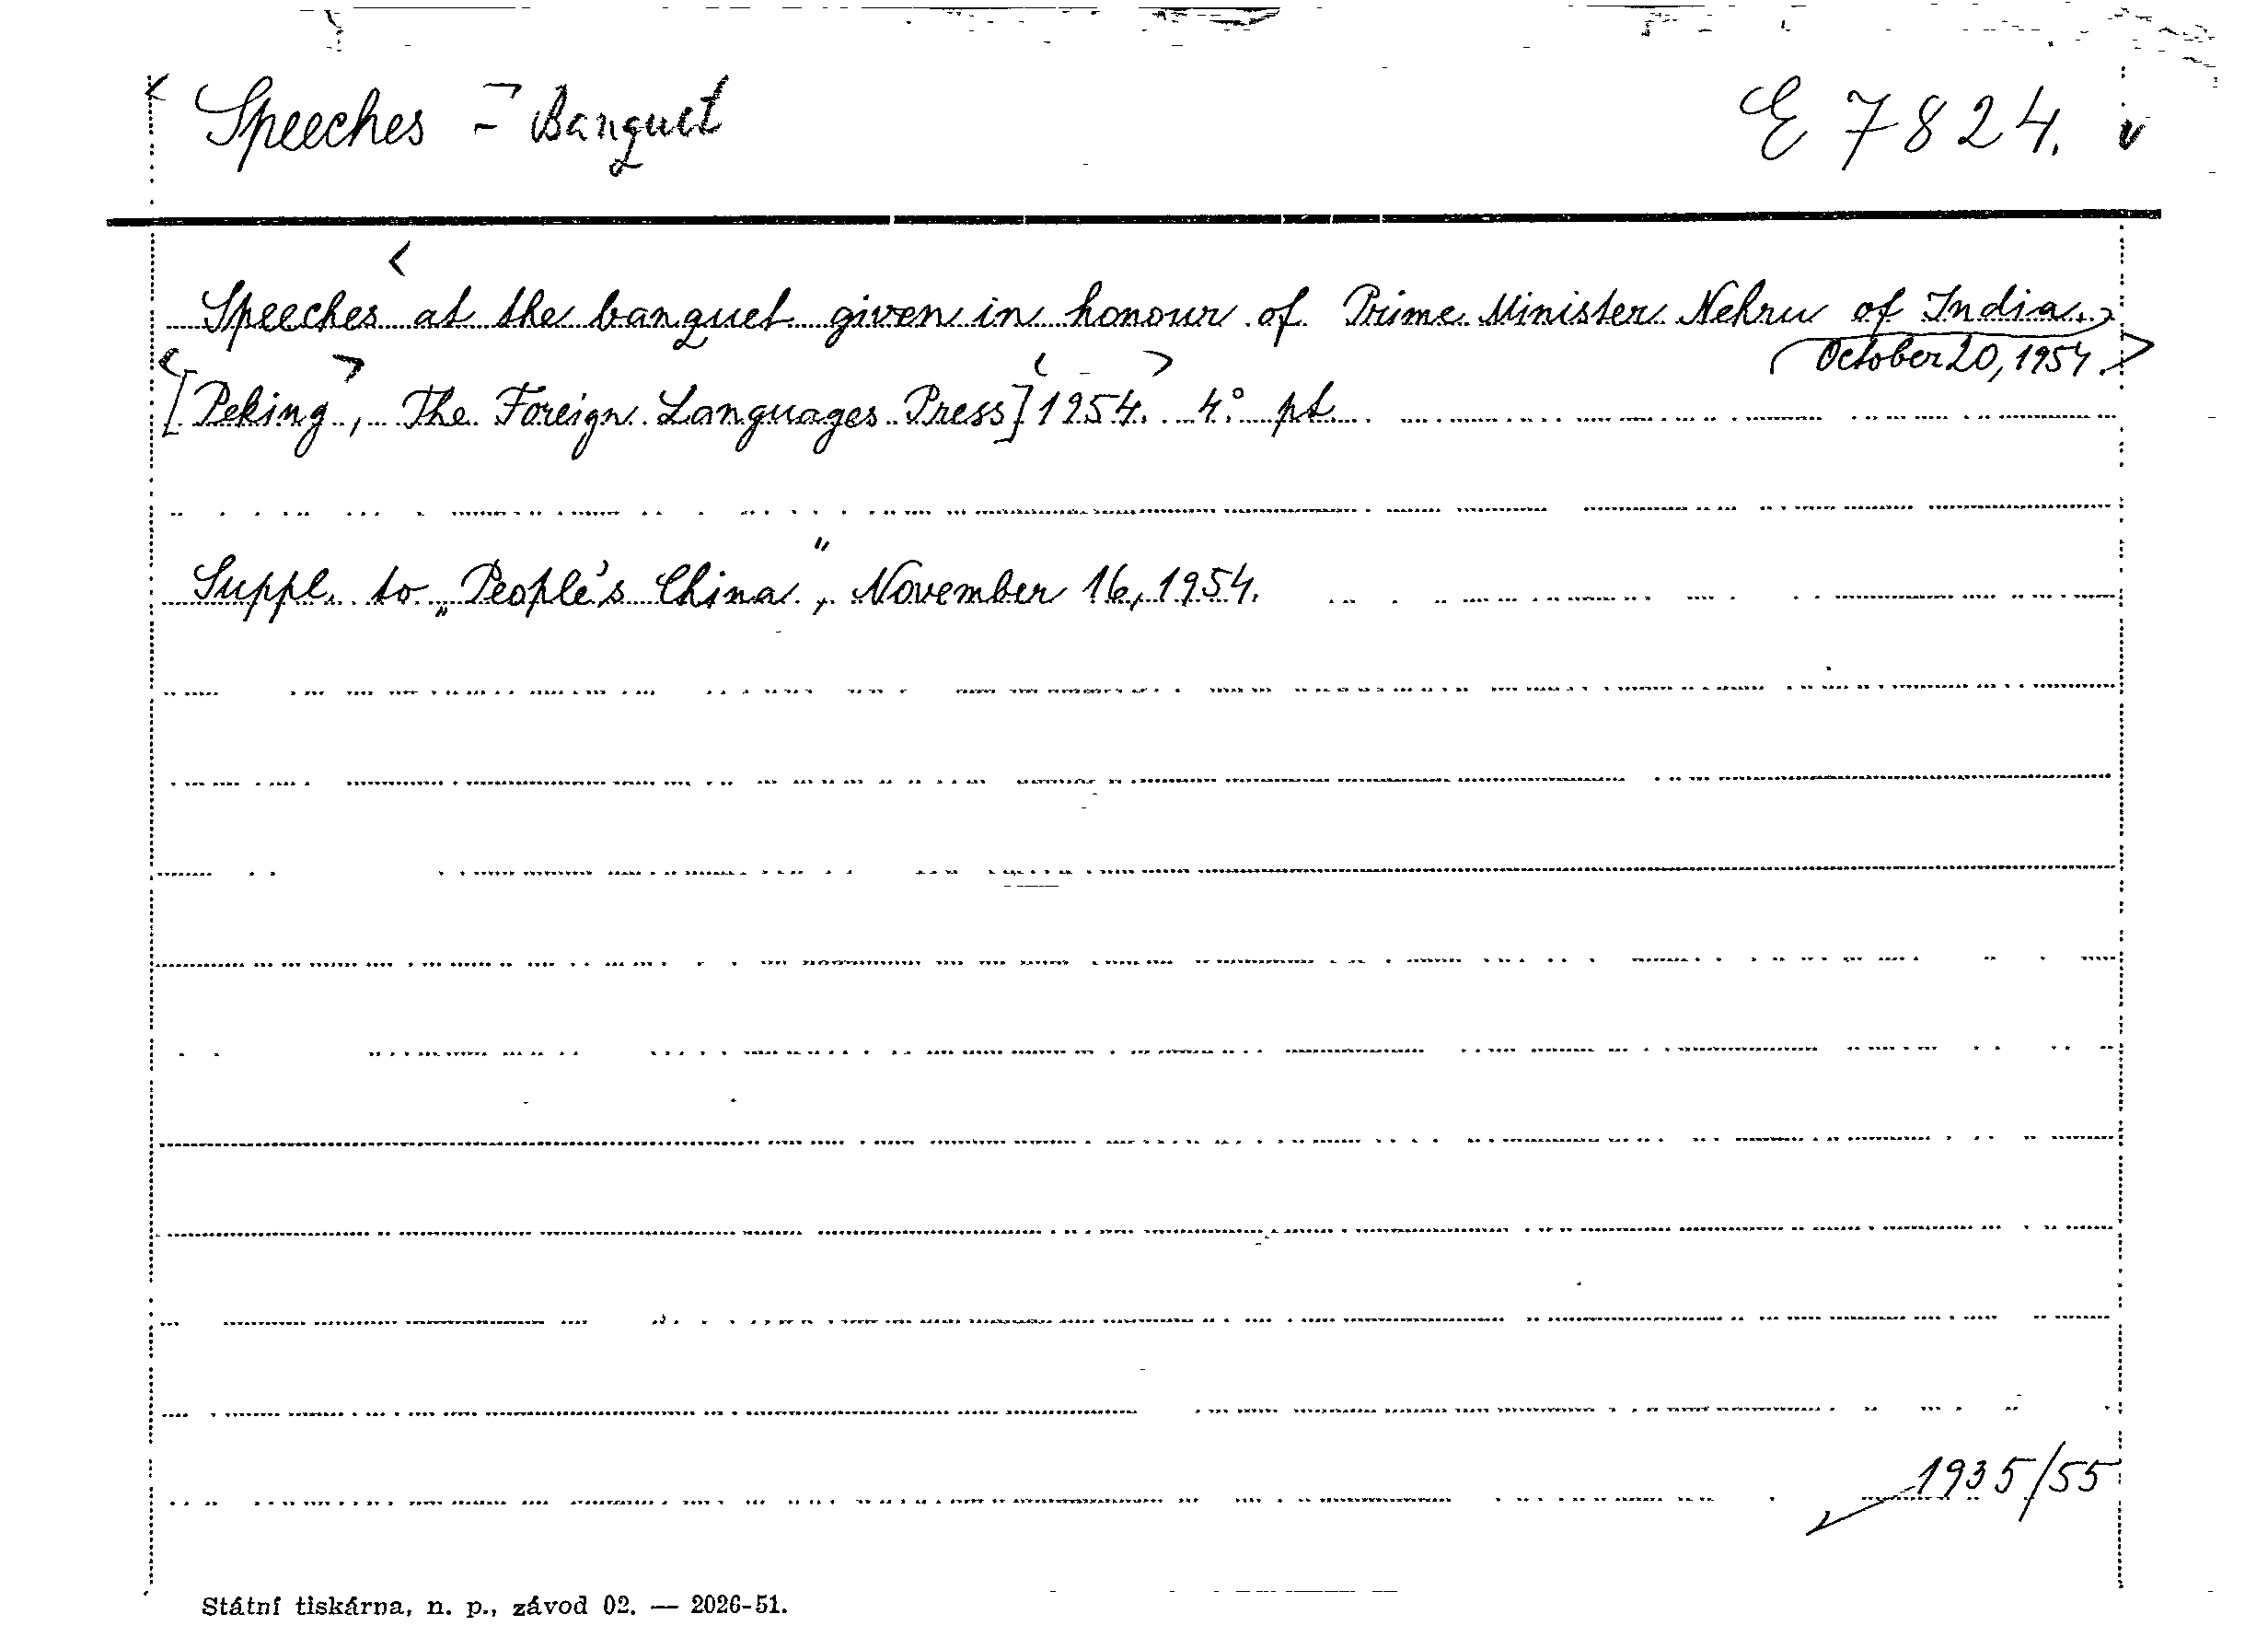 Speeches - Banquet E 7824.
Speeches at the banquet given in honour of Prime Minister Nehru of India.
October 20, 1954.
[Peking, The Foreign Languages Press] 1954. 4° pt.
Suppl. to „People's China", November 16, 1954.
1935/55
Státní tiskárna, n. p., závod 02. — 2026-51.